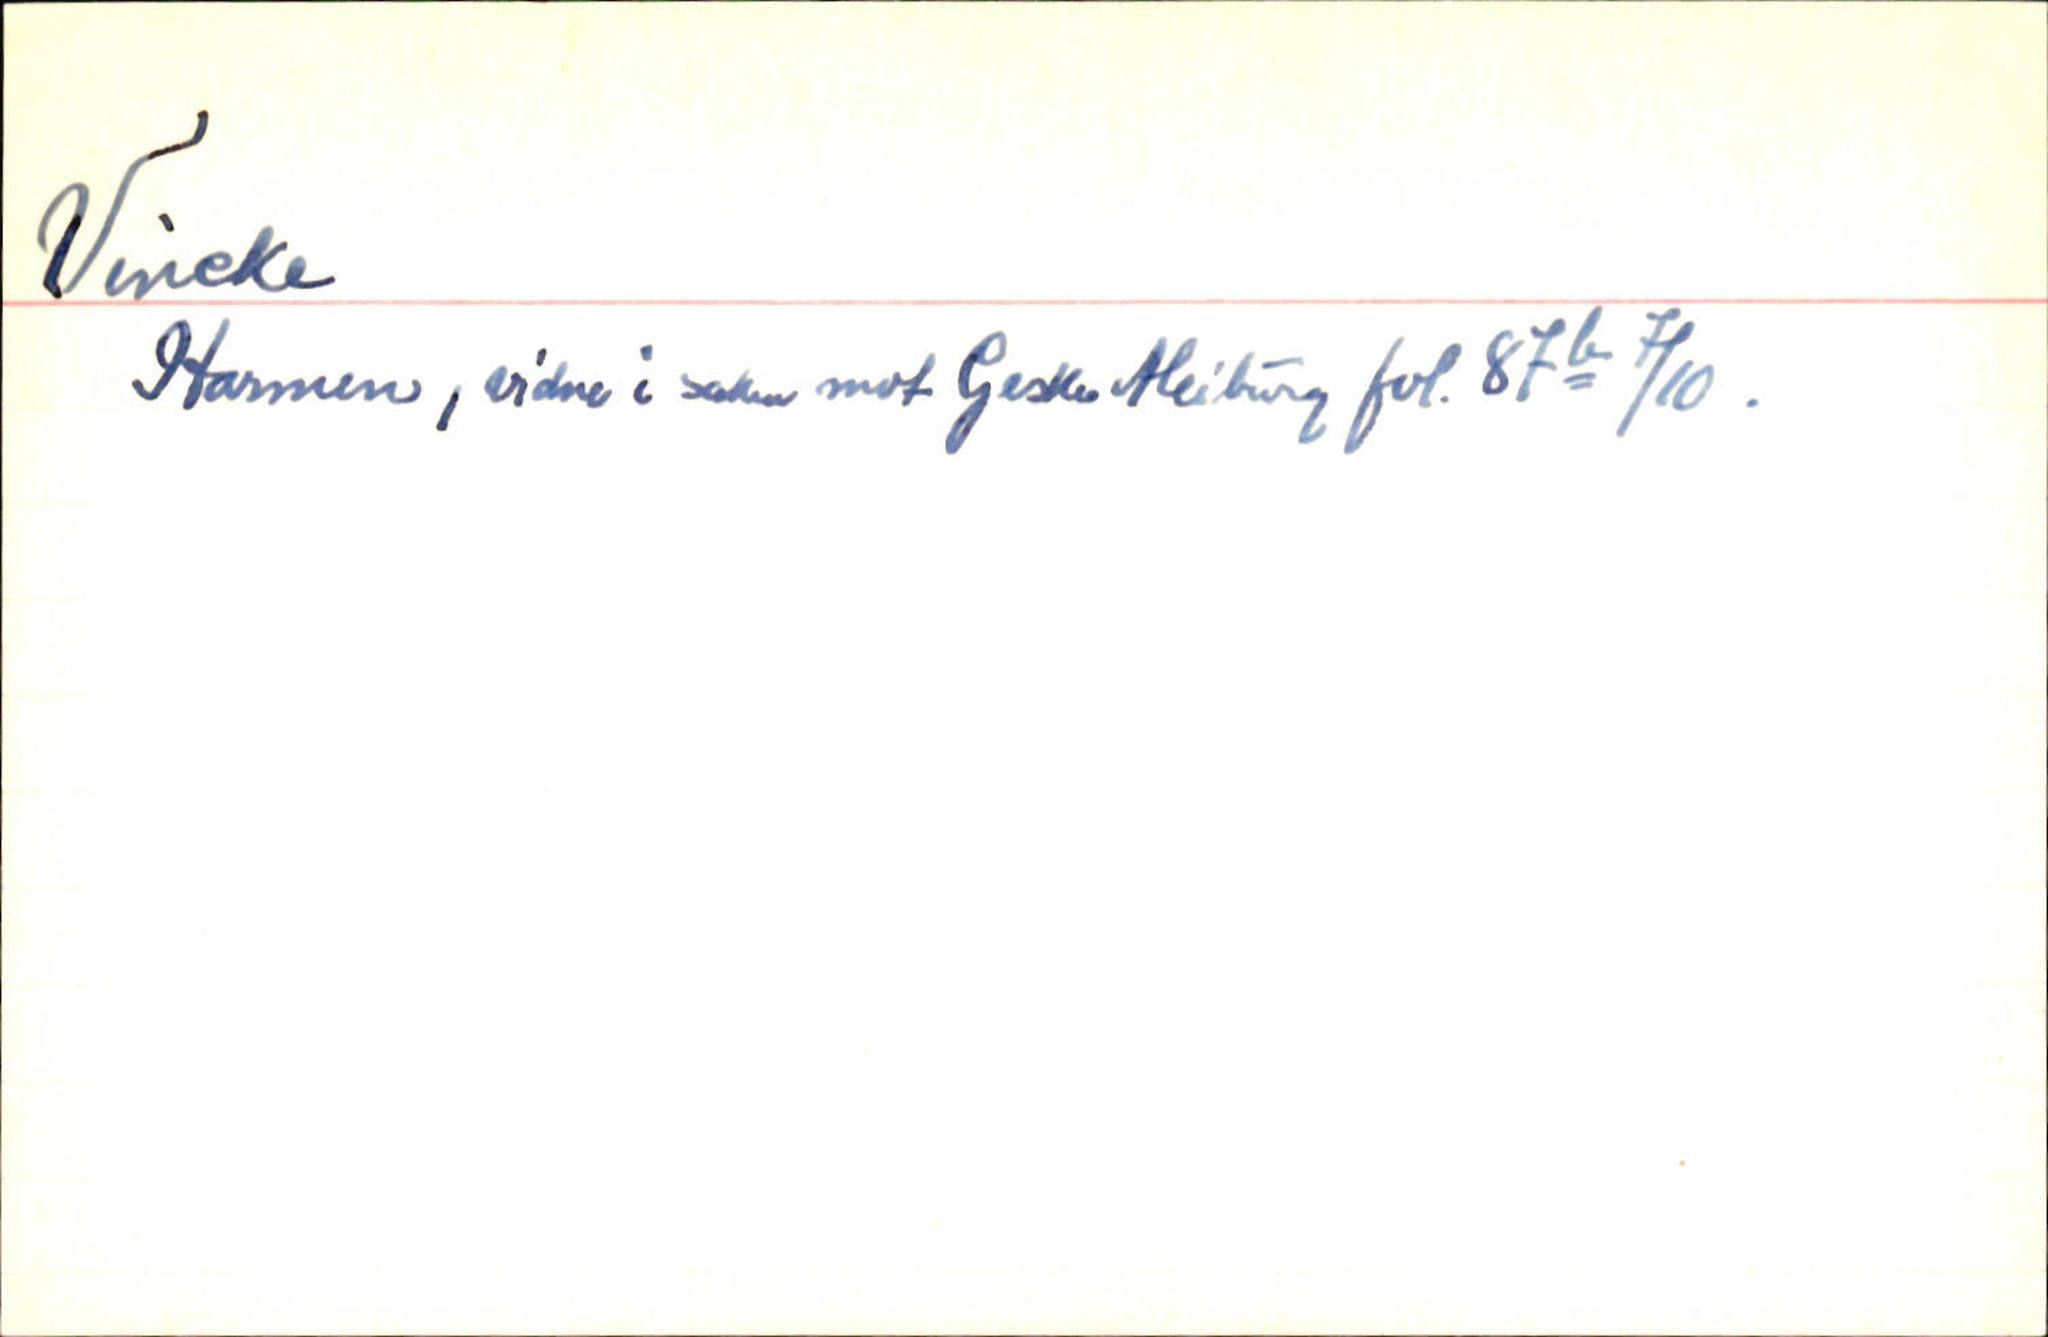 Vincke
Harmen, vidne i saken mot Geske Meiburg fol. 87b 7/10.